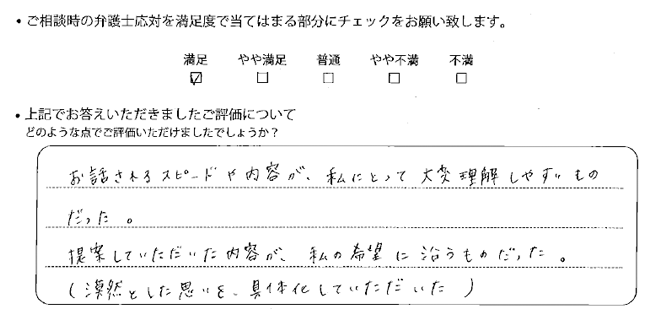 ・ご相談時の弁護士応対を満足度で当てはまる部分にチェックをお願い致します。
満足 やや満足 普通 やや不満 不満
☑ □ □ □ □
・上記でお答えいただきましたご評価について
どのような点でご評価いただけましたでしょうか？
お話されるスピードや内容が、私にとって大変理解しやすいもの
だった。
提案していただいた内容が、私の希望に沿うものだった。
(漠然とした思いを、具体化していただいた)